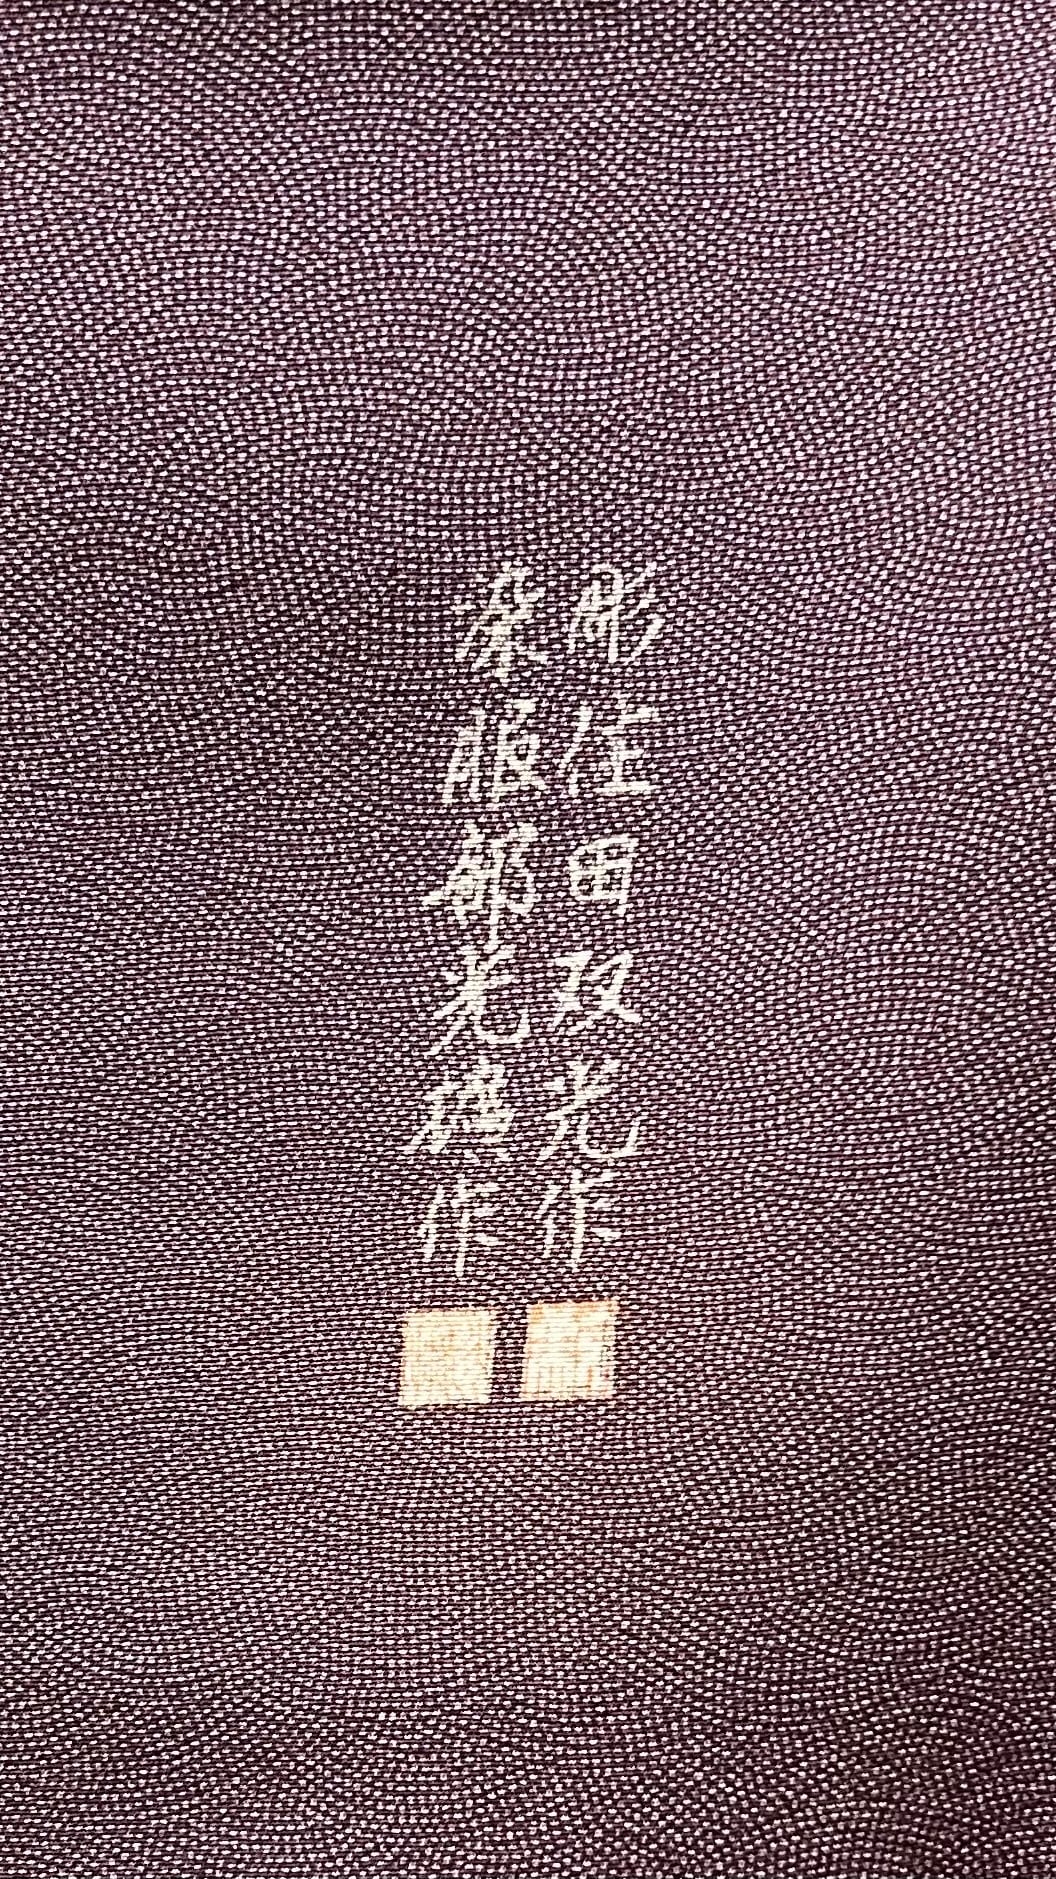 彫 住田双光作
染 服部光璵作